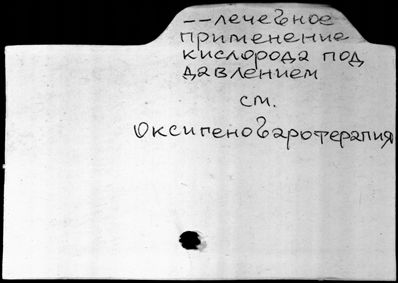 --лечебное
применение
кислорода под
давлением
см.
Оксигенобаротерапия